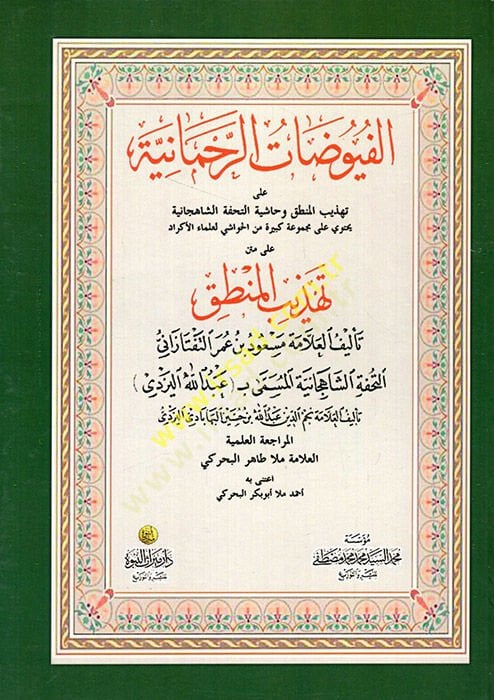 الفيوضات الرحمانية
على
تهذيب المنطق وحاشية التحفة الشاهجانية
يحتوي على مجموعة كبيرة من الحواشي لعلماء الأكراد
على متن
تهذيب المنطق
تأليف العلامة مسعود بن عمر التفتازاني
التحفة الشاهجانية المسمى بـ (عبد الله اليزدي)
تأليف العلامة نجم الدين عبد الله بن حسين اليزدي
المراجعة العلمية
العلامة ملا طاهر البحركي
اعتنى به
أحمد ملا أبوبكر البحركي
مؤسسة
محمد السيد محمد محمد مصطفى
للنشر والتوزيع
دار ميراث النبوة
للنشر والتوزيع